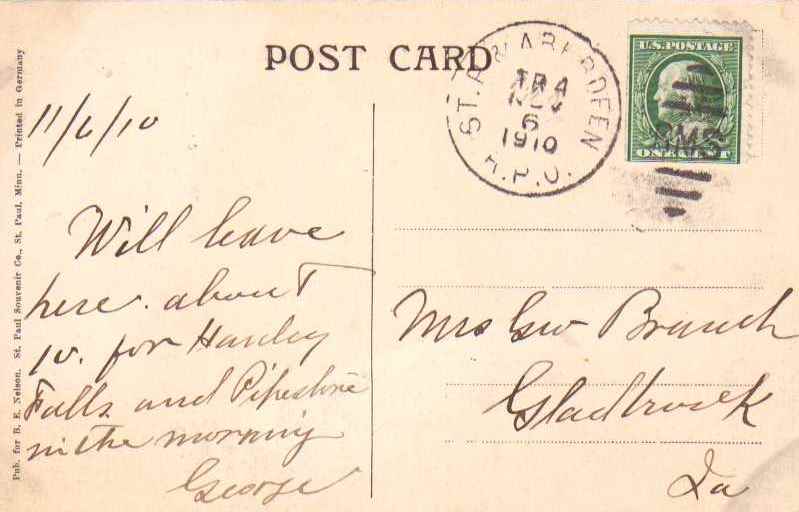 POST CARD
ST. P. & ABERDEEN
TR 4
NOV
6
1910
R.P.O.
U.S. POSTAGE
ONE CENT
RMS
11/6/10
Will leave
here about
10. for Hanley
Falls and Pipestone
in the morning
George
Mrs Geo Branch
Gladbrook
Ia
Pub. for B. E. Nelson. St. Paul Souvenir Co., St. Paul, Minn. — Printed in Germany